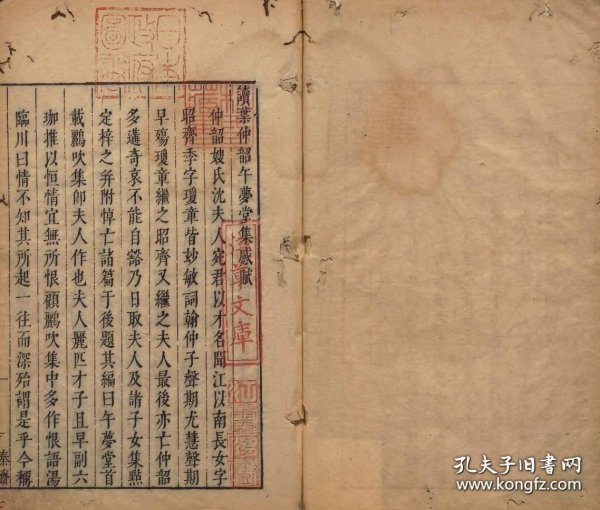 讀葉仲韶午夢堂集感賦
仲韶嫂氏沈夫人宛君以才名聞江以南長女字
昭齊季字瓊章皆妙敏詞翰仲子聲期尤慧聲期
早殤瓊章繼之昭齊又繼之夫人最後亦亡仲韶
多遘奇哀不能自豁乃日取夫人及諸子女集㸃
定梓之并附悼亡諸篇于後題其編曰午夢堂首
載鸝吹集即夫人作也夫人麗匹才子且早副六
珈推以恒情宜無所恨顧鸝吹集中多作恨語湯
臨川曰情不知其所起一往而深殆謂是乎今稱
泰齋
文庫
孔夫子旧书网
www.kongfz.com